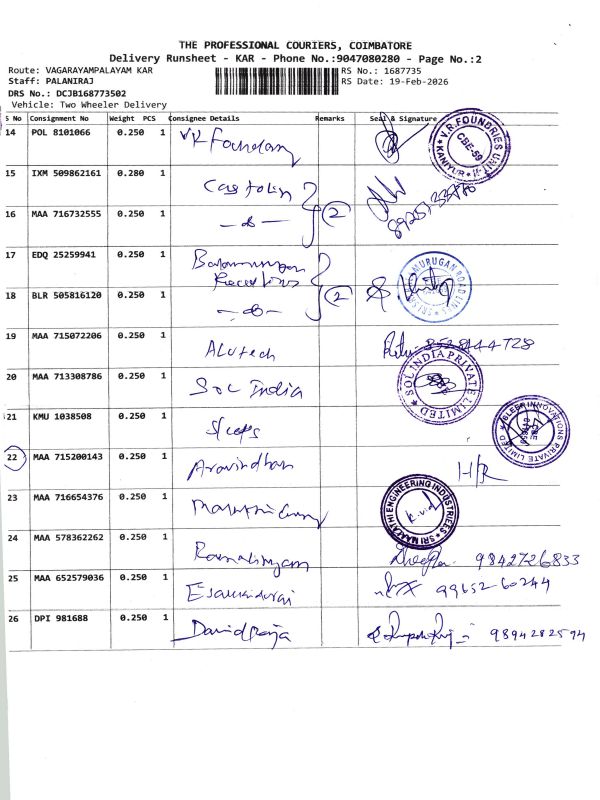 THE PROFESSIONAL COURIERS, COIMBATORE
Delivery Runsheet - KAR - Phone No.:9047080280 - Page No.:2
Route: VAGARAYAMPALAYAM KAR RS No.: 1687735
Staff: PALANIRAJ RS Date: 19-Feb-2026
DRS No.: DCJB168773502
Vehicle: Two Wheeler Delivery
S No Consignment No Weight PCS Consignee Details Remarks Seal & Signature
14 POL 8101066 0.250 1 VR Foundary
V.R.FOUNDRIES UNIT-II KANIYUR CBE-59
15 IXM 509862161 0.280 1
16 MAA 716732555 0.250 1 -do- 2
17 EDQ 25259941 0.250 1 Balamurugan
MURUGAN ROAD LINES
18 BLR 505816120 0.250 1 -do- 2
19 MAA 715072206 0.250 1 Alutech
20 MAA 713308786 0.250 1 Sol India
SOL INDIA PRIVATE LIMITED
21 KMU 1038508 0.250 1
INNOVATIONS PRIVATE LIMITED
22 MAA 715200143 0.250 1 Aravindhan H/R
23 MAA 716654376 0.250 1
SRI MAARATHI ENGINEERING INDUSTRIES
24 MAA 578362262 0.250 1 Ramalingam 9842726833
25 MAA 652579036 0.250 1 Esakkidurai 9965260244
26 DPI 981688 0.250 1 David Raja 9894282594